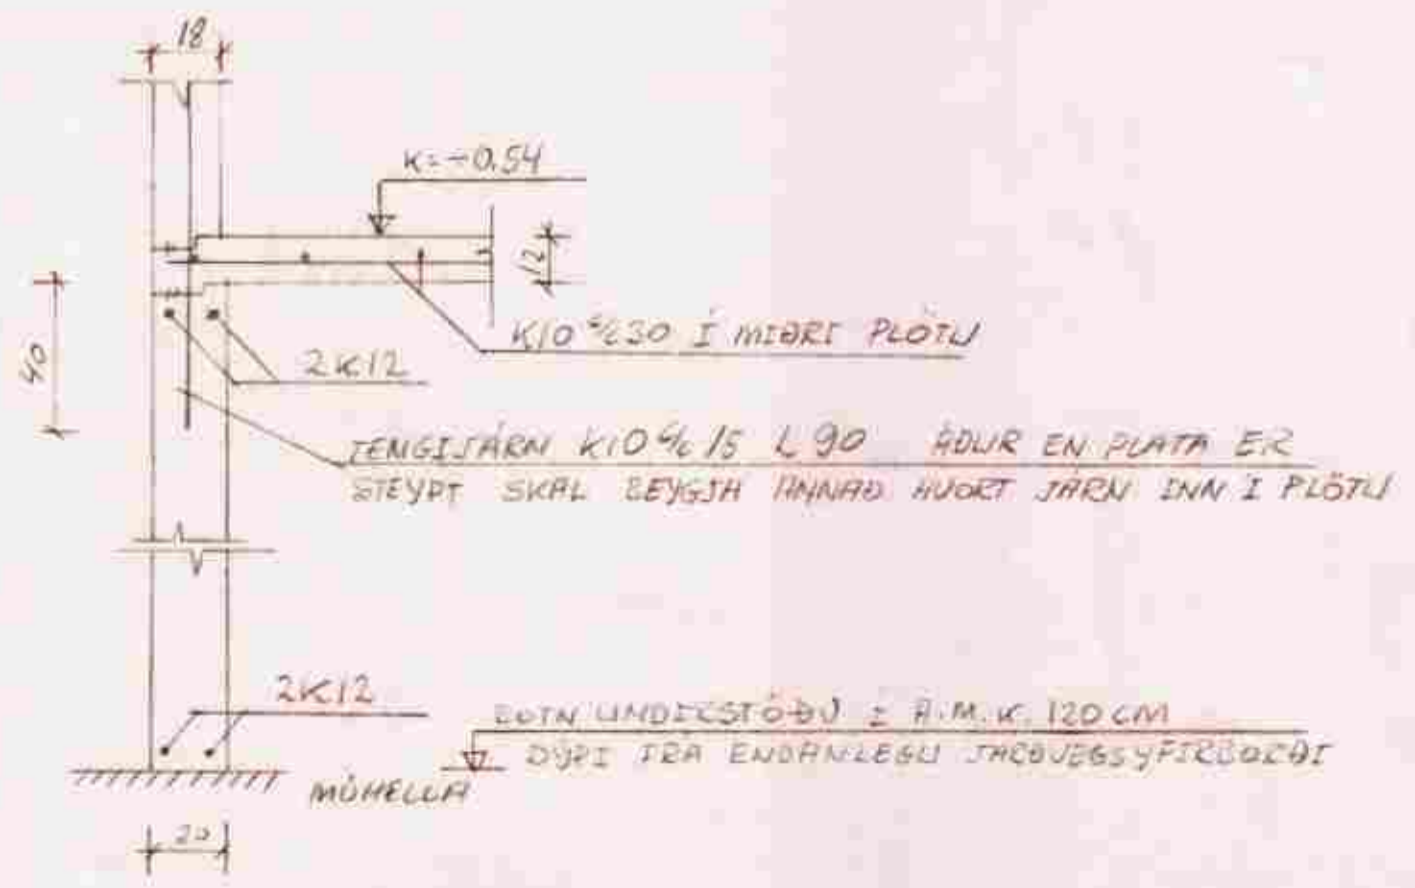 18
K=-0.54
12
K10 c/c30 Í MIÐRI PLÖTU
40
2K12
TENGIJÁRN K10 c/c 15 L 90 ÁÐUR EN PLATA ER
STEYPT SKAL BEYGJA ANNAÐ HVORT JÁRN INN Í PLÖTU
2K12
BOTN UNDIRSTÖÐU Í A.M.K. 120 CM
DÝPI FRÁ ENDANLEGU JARÐVEGSYFIRBORÐI
MÓHELLA
20